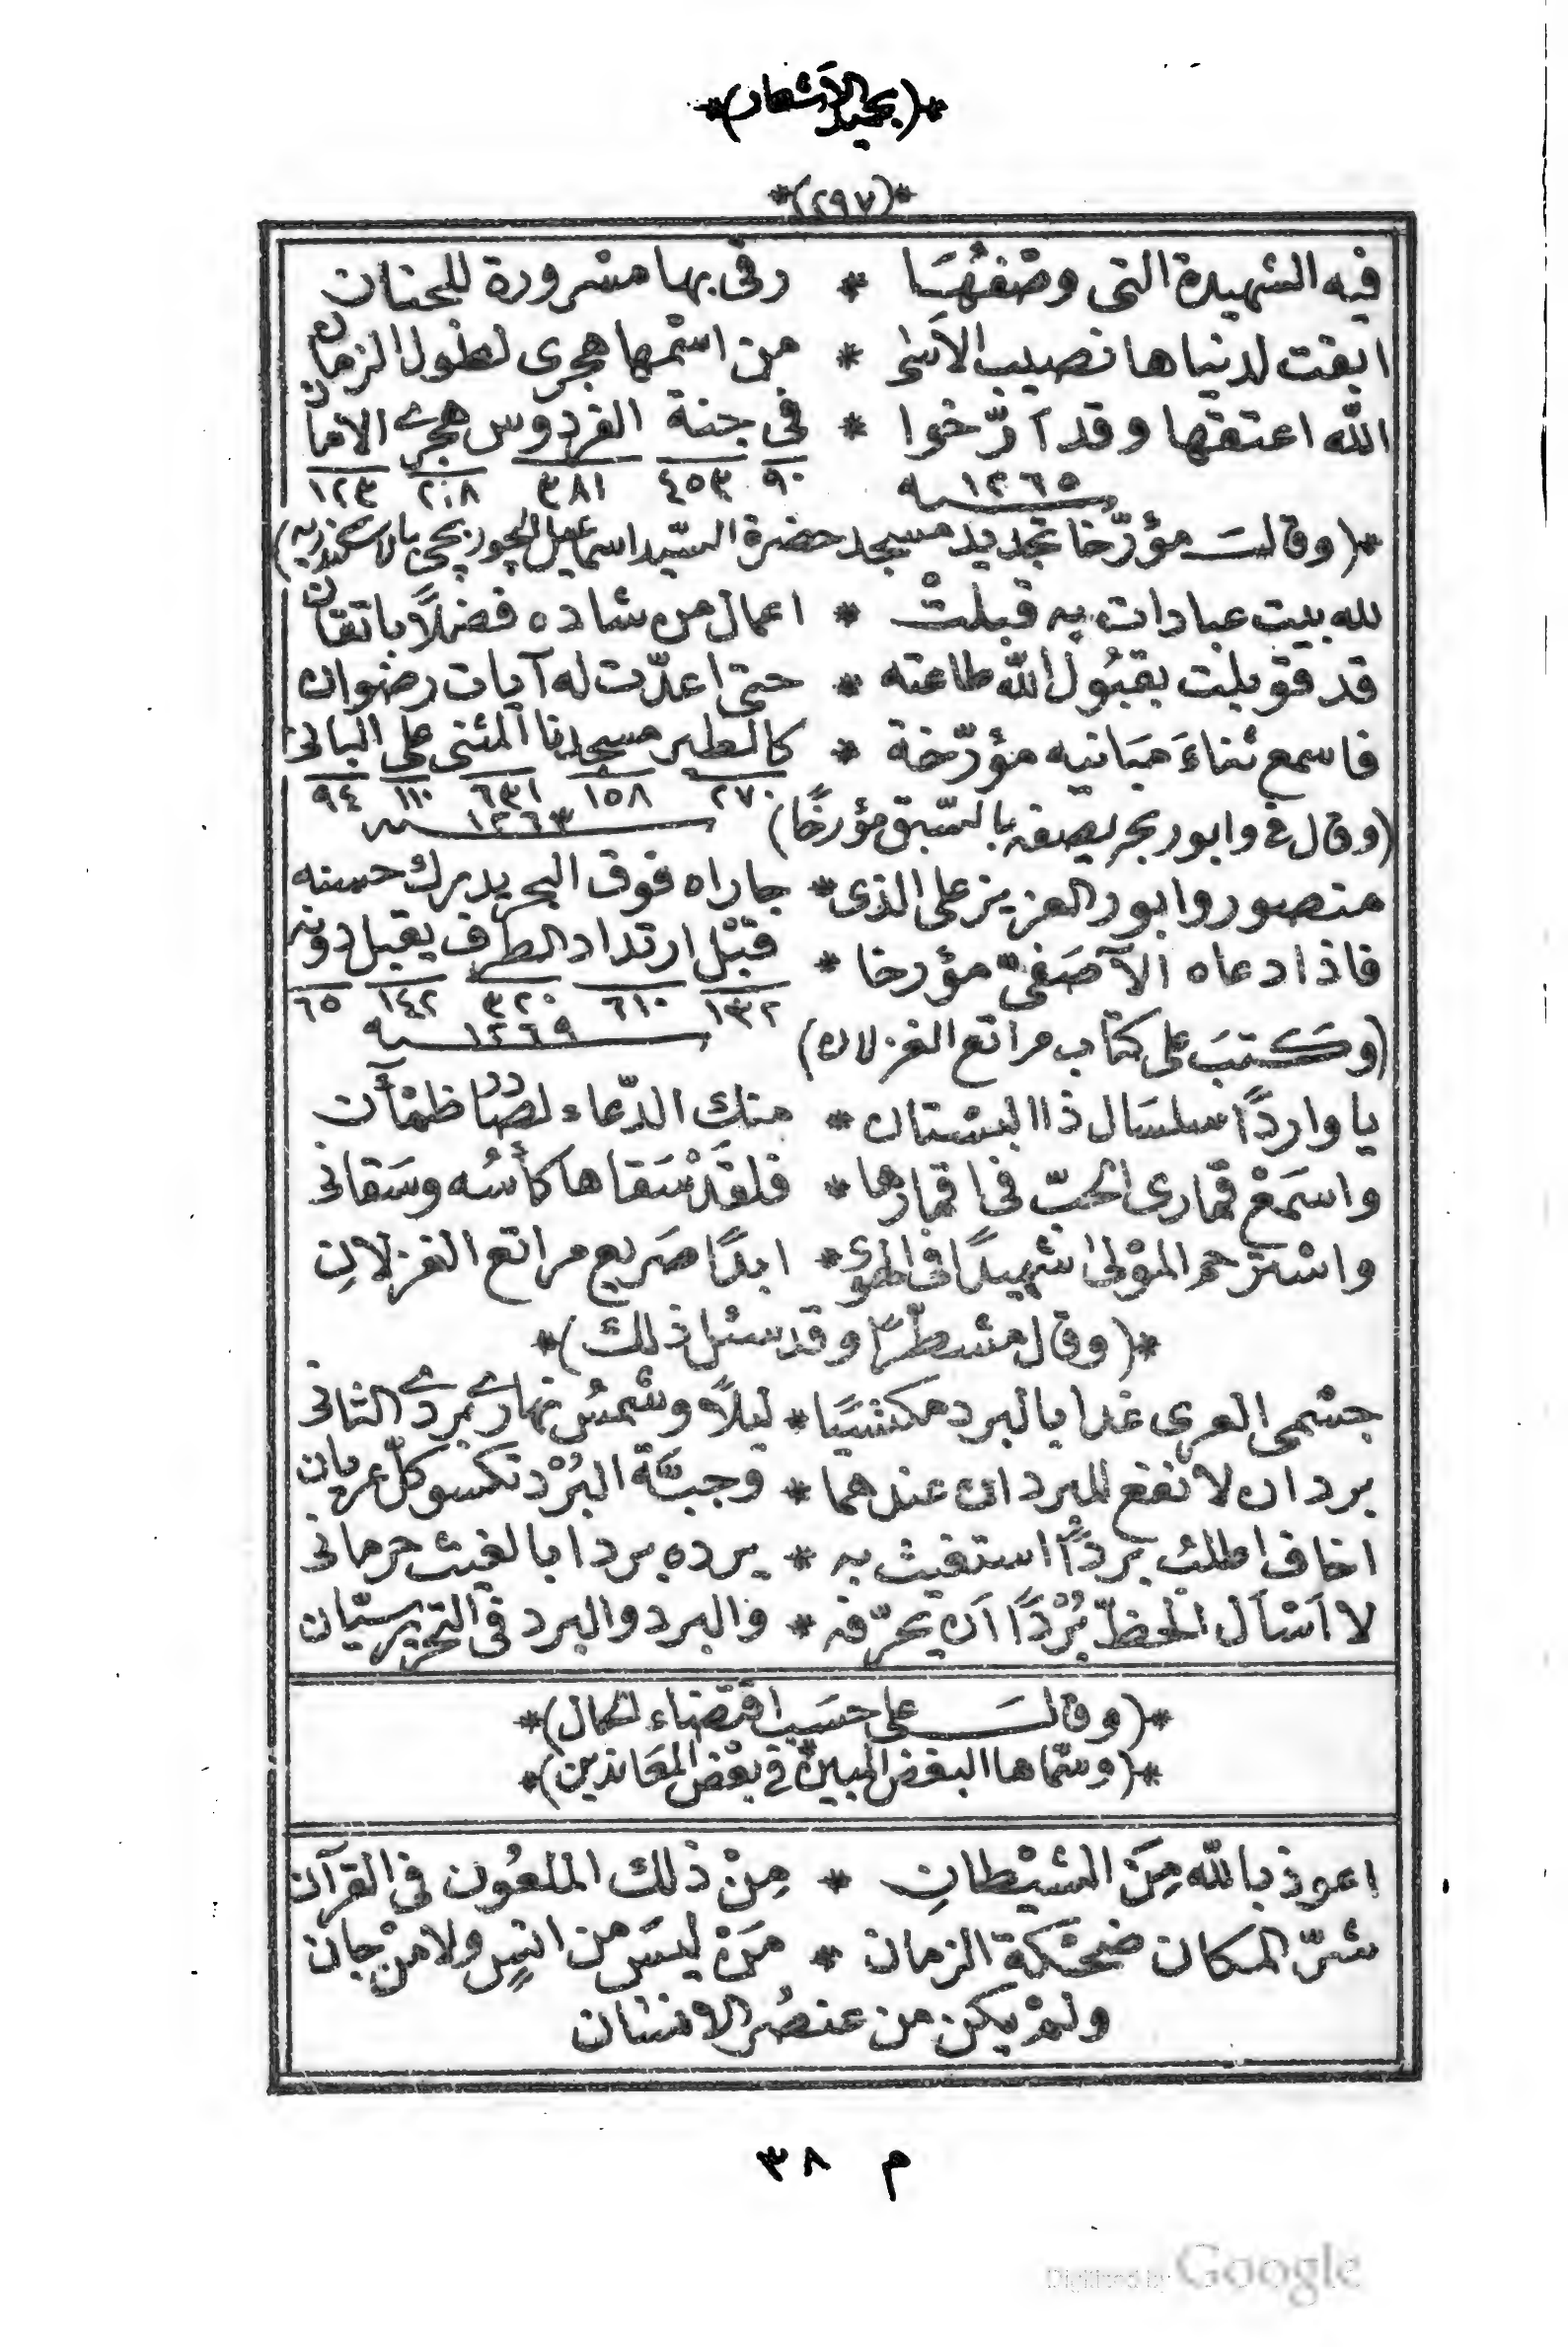 *(بحميد الأشعار)*
*(٢٩٧)*
فيه الشهيدة التى وصْفهُا * رقى بها مسْرورة للجنان
ابقت لدنياها نصيب الأسَى * من اسْمها هجرى لطول الزمان
الله اعتقها وقد آرّخوا * فى جنة الفردوس هجرے الامان
١٢٦٥ سنه ٩٠ ٤٥٣ ٣٨١ ٢٠٨ ١٢٣
*(وقالــ مؤرّخا تجديد مسجد حضرة السّيد اسماعيل الجوربجى بالاسكندريه)
لله بيت عبادات به قبلتْ * اعمال من شاده فضلاً باتقان
قد قوبلت بقبُول الله طاعته * حتى اعدّت له آيات رضوان
فاسمع ثناءَ مبَانيه مؤرّخة * كالطير مسجدنا المثنى على البانى
٢٧٠ ١٥٨ ٦٣١ ١١٠ ٩٤
(وقال فى وابور بحر يصفه بالسّبق مؤرخًا) ١٢٦٣ سنه
منصور وابور العزيز على الذى * جاراه فوق البحر يدرك حسنه
فاذا دعاه الآصَفىّ مؤرخا * قبْل ارتداد الطرف يقبل دونه
١٣٢ ٦١٠ ٣٢٠ ١٤٢ ٦٥
(وكتبَ على كتاب مراتع الغزلان) ١٢٦٩ سنه
يا واردًا سلسَال ذا البسْتان * منك الدّعاء لصُدُا ظمْأن
واسمَعْ قمارى الحبّ فى اقمارها * فلقدْ سَقاها كأسُه وسَقانى
واسْترحم الموْلى شهيدًا فى الهوى * ابدًا صَريع مراتع الغزلانِ
*(وقال مشطّرًا وقد سئل ذلك)*
جسْمى العرى غدا بالبرد مكتسيًا * ليلاً وشمْسُ نهارے بردے الثانى
بردان لا نفع للبردان عندهما * وجبّة البُرْد تكسو كلّ عريان
اخاف اطلبُ بردًا استغيث به * يرده بردا بالغيث حرمانى
لا اَسْاَل الحظّ بُرْدًا اَن يحرّفه * والبرد والبرد فى التحرير سيّان
*(وقالــ على حسَب اقتضاء الحال)*
*(وسمّاها البغض المبين فى بعْض المعَاندين)*
اعوذ بالله مِنَ الشيْطانِ * مِنْ ذلك الملعُون فى القرآن
شرّ المكان ضحْكة الزمان * مَنْ ليسَ من انسٍ ولا منْ جان
ولمْ يكن من عنصُر الانسَان
م ٣٨
Digitized by Google